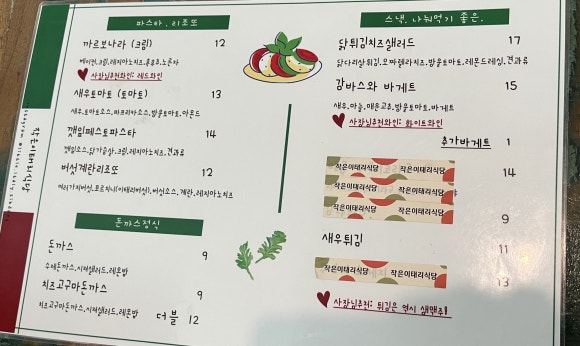 작은이태리식당
파스타, 리조또
까르보나라 (크림) 12
베이컨,크림,레지아노치즈,후추,노른자
사장님추천와인: 레드와인
새우토마토 (토마토) 13
새우,토마토소스,파프리카소스,방울토마토,아몬드
깻잎페스토파스타 14
깻잎소스,닭가슴살,크림,레지아노치즈,견과류
버섯계란리조또 12
여러가지버섯,포르치니(이태리버섯),버섯소스,계란,레지아노치즈
돈까스정식
돈까스 9
수제돈까스,시저샐러드,레몬밥
치즈고구마돈까스 9
치즈고구마돈까스,시저샐러드,레몬밥 더블 12
스낵, 나눠먹기 좋은.
닭튀김치즈샐러드 17
닭다리살튀김,모짜렐라치즈,방울토마토,레몬드레싱,견과류
감바스와 바게트 15
새우,마늘,매운고추,방울토마토,바게트
사장님추천와인: 화이트와인
추가바게트 1
작은이태리식당 작은이태리식당 14
작은이태리식당 작은이태리식당
작은이태리식당 작은이태리식당 9
새우튀김 11
작은이태리식당 작은이태리식당 13
사장님추천: 튀김은 역시 생맥주!